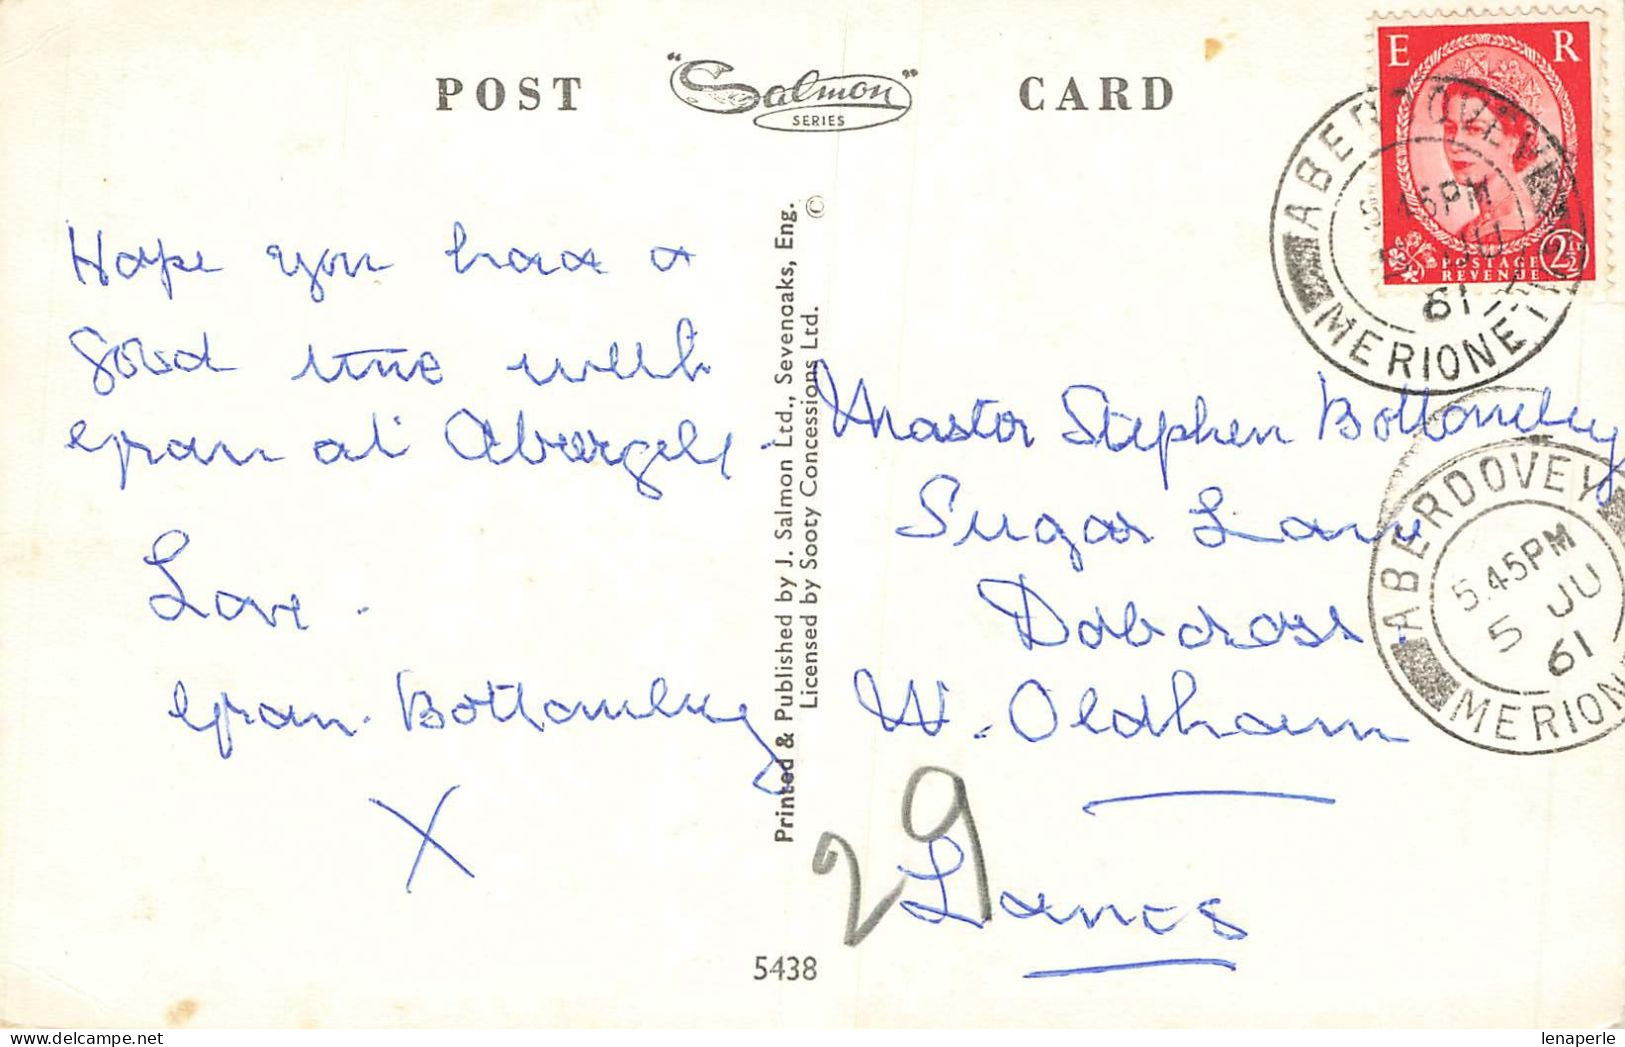 POST "Salmon" CARD
SERIES
E R
POSTAGE
REVENUE
2½
ABERDOVEY
5.45PM
JU
61
MERIONETH
ABERDOVEY
5.45PM
5 JU
61
MERION
Hope you have a
good time with
gran at Abergele.
Love.
gran. Bottomley
X
Printed & Published by J. Salmon Ltd., Sevenoaks, Eng. ©
Licensed by Sooty Concessions Ltd.
Master Stephen Bottomley
Sugar Lane
Dobcross
W. Oldham
Lancs
29
5438
lenaperle